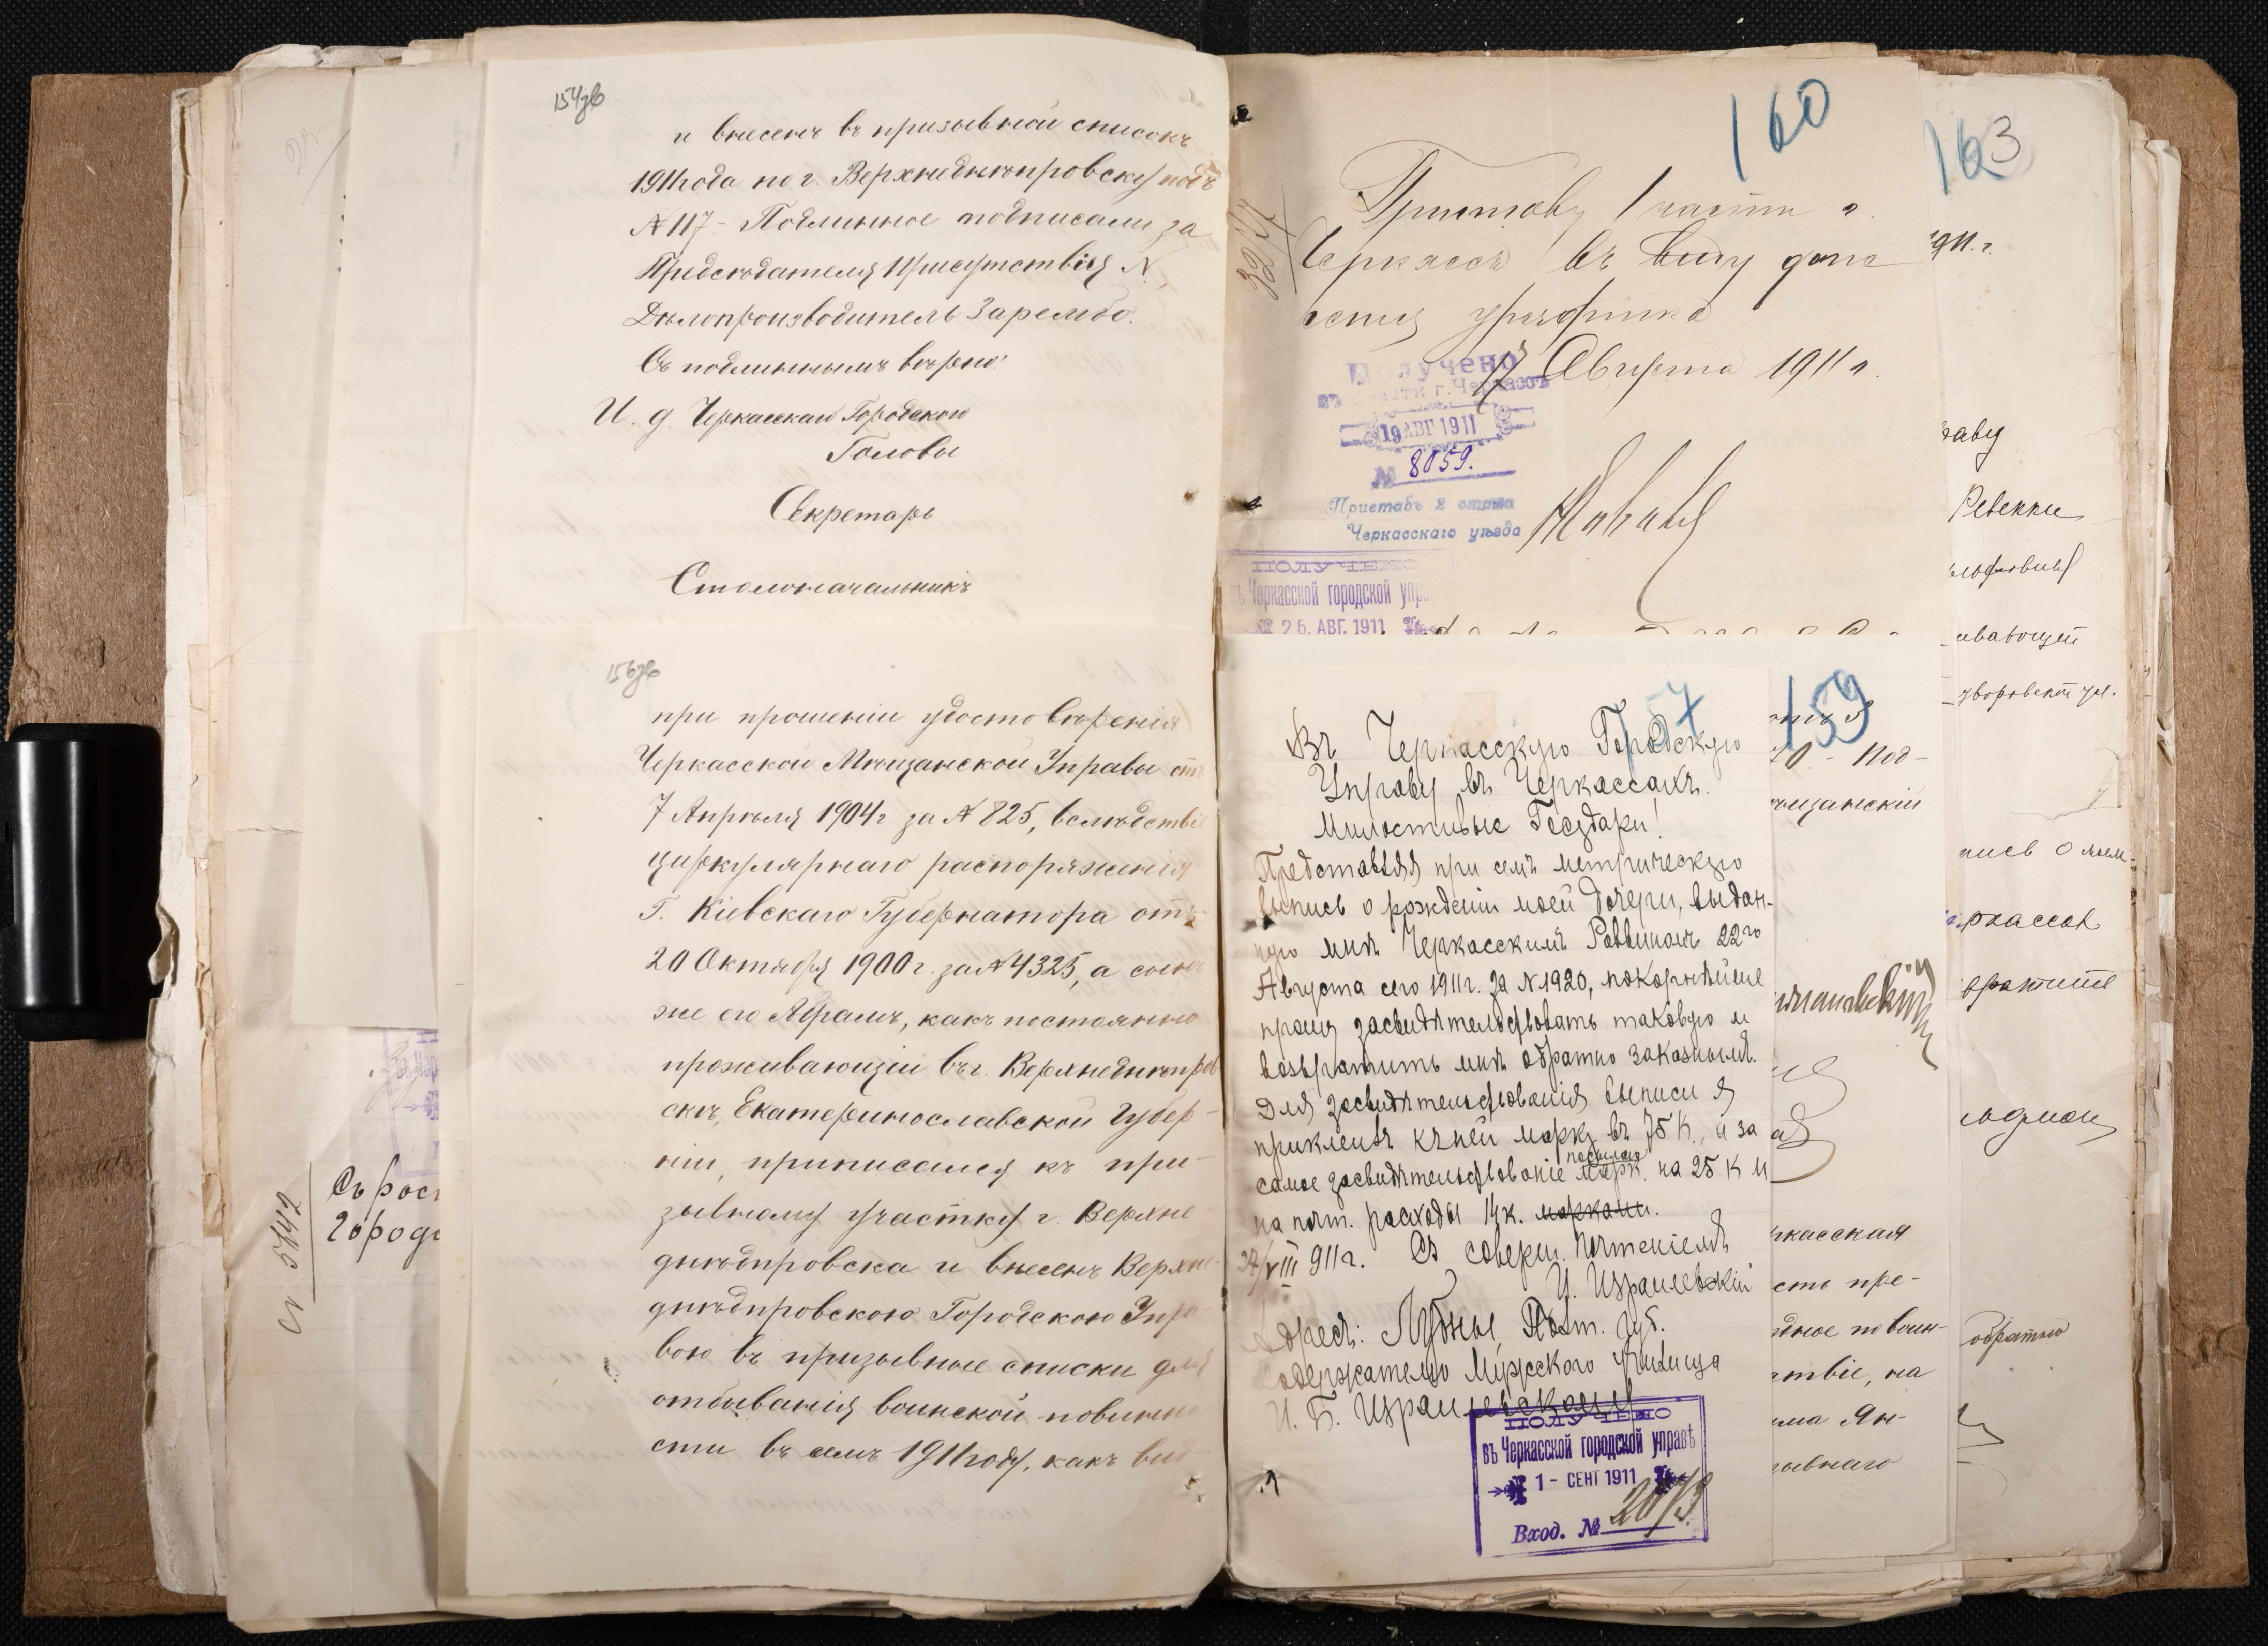 154зв
и внесенъ въ призывной списокъ
1911 года по г. Верхнеднѣпровску подъ
№ 117.- Подлинное подписали за
Предсѣдателя Присутствія N,
Дѣлопроизводитель Зарембо.
Съ подлиннымъ вѣрно:
И. д. Черкасскаго Городского
Головы
Секретарь
Столоначальникъ
156зв
при прошеніи удостовѣренія
Черкасской Мѣщанской Управы отъ
7 Апрѣля 1904 г за № 825, вслѣдствіе
циркулярнаго распоряженія
Г. Кіевскаго Губернатора отъ
20 Октября 1900 г. за № 4325, а сынъ
же его Абрамъ, какъ постоянно
проживающій въ г. Верхнеднѣпров
скѣ, Екатеринославской Губер-
ніи, приписался къ при-
зывному участку г. Верхне-
днѣпровска и внесенъ Верхне-
днѣпровскою Городскою Упра-
вою въ призывные списки для
отбыванія воинской повинно
сти въ семъ 1911 году, какъ вид
Съ рос
Городс
№ 5142
160
Приставу 1 части г.
Черкассъ въ виду доне
сенія урядника
Августа 1911 г.
Получено
г. Черкассъ
19 АВГ 1911
№ 8059.
Приставъ 2 стана
Черкасскаго уѣзда
ПОЛУЧЕНО
въ Черкасской городской упр
26. АВГ. 1911
157
Въ Черкасскую Городскую
Управу въ Черкассахъ.
Милостивые Государи!
Представляя при семъ метрическую
выпись о рожденіи моей дочери, выдан-
ную мнѣ Черкасскимъ Раввиномъ 22го
Августа сего 1911 г. за № 1920, покорнѣйше
прошу засвидѣтельствовать таковую и
возвратить мнѣ обратно заказнымъ.
Для засвидѣтельствованія выписи я
приклеилъ къ ней марку въ 75 к., а за
самое засвидѣтельствованіе посылаю марк. на 25 к и
на почт. расходы 14 к. марками.
VIII 911 г. Съ соверш. почтеніемъ
И. Израилевскій
Адресъ: Лубны, Полт. губ.
Содержателю Мужского училища
И. Б. Израилевскому
ПОЛУЧЕНО
въ Черкасской городской управѣ
1 - СЕНТ 1911
Вход. № 2073
159
Под-
ѣщанскій
ркасская
сть пре-
дное по воин-
тствіе, на
има Ян-
зывнаго
163
1911. г.
раву
Ревекки
ивающей
пись о моем
ркассов
обратно